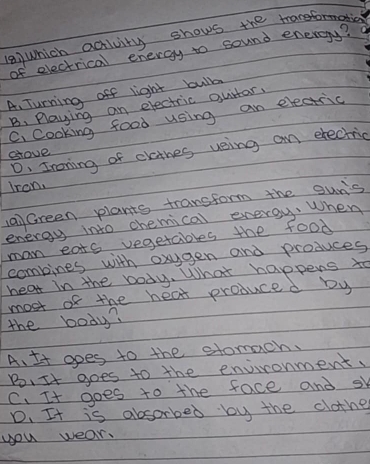 18.) Which activity shows the transformation
of electrical energy to sound energy?
A. Turning off light bulb
B. Playing an electric guitar.
C. Cooking food using an electric
stove
D. Ironing of clothes using an electric
Iron.
19.) Green plants transform the sun's
energy into chemical energy. When
man eats vegetables the food
combines with oxygen and produces
heat in the body. What happens to
most of the heat produced by
the body?
A. It goes to the stomach.
B. It goes to the environment.
C. It goes to the face and
D. It is absorbed by the clothes
you wear.